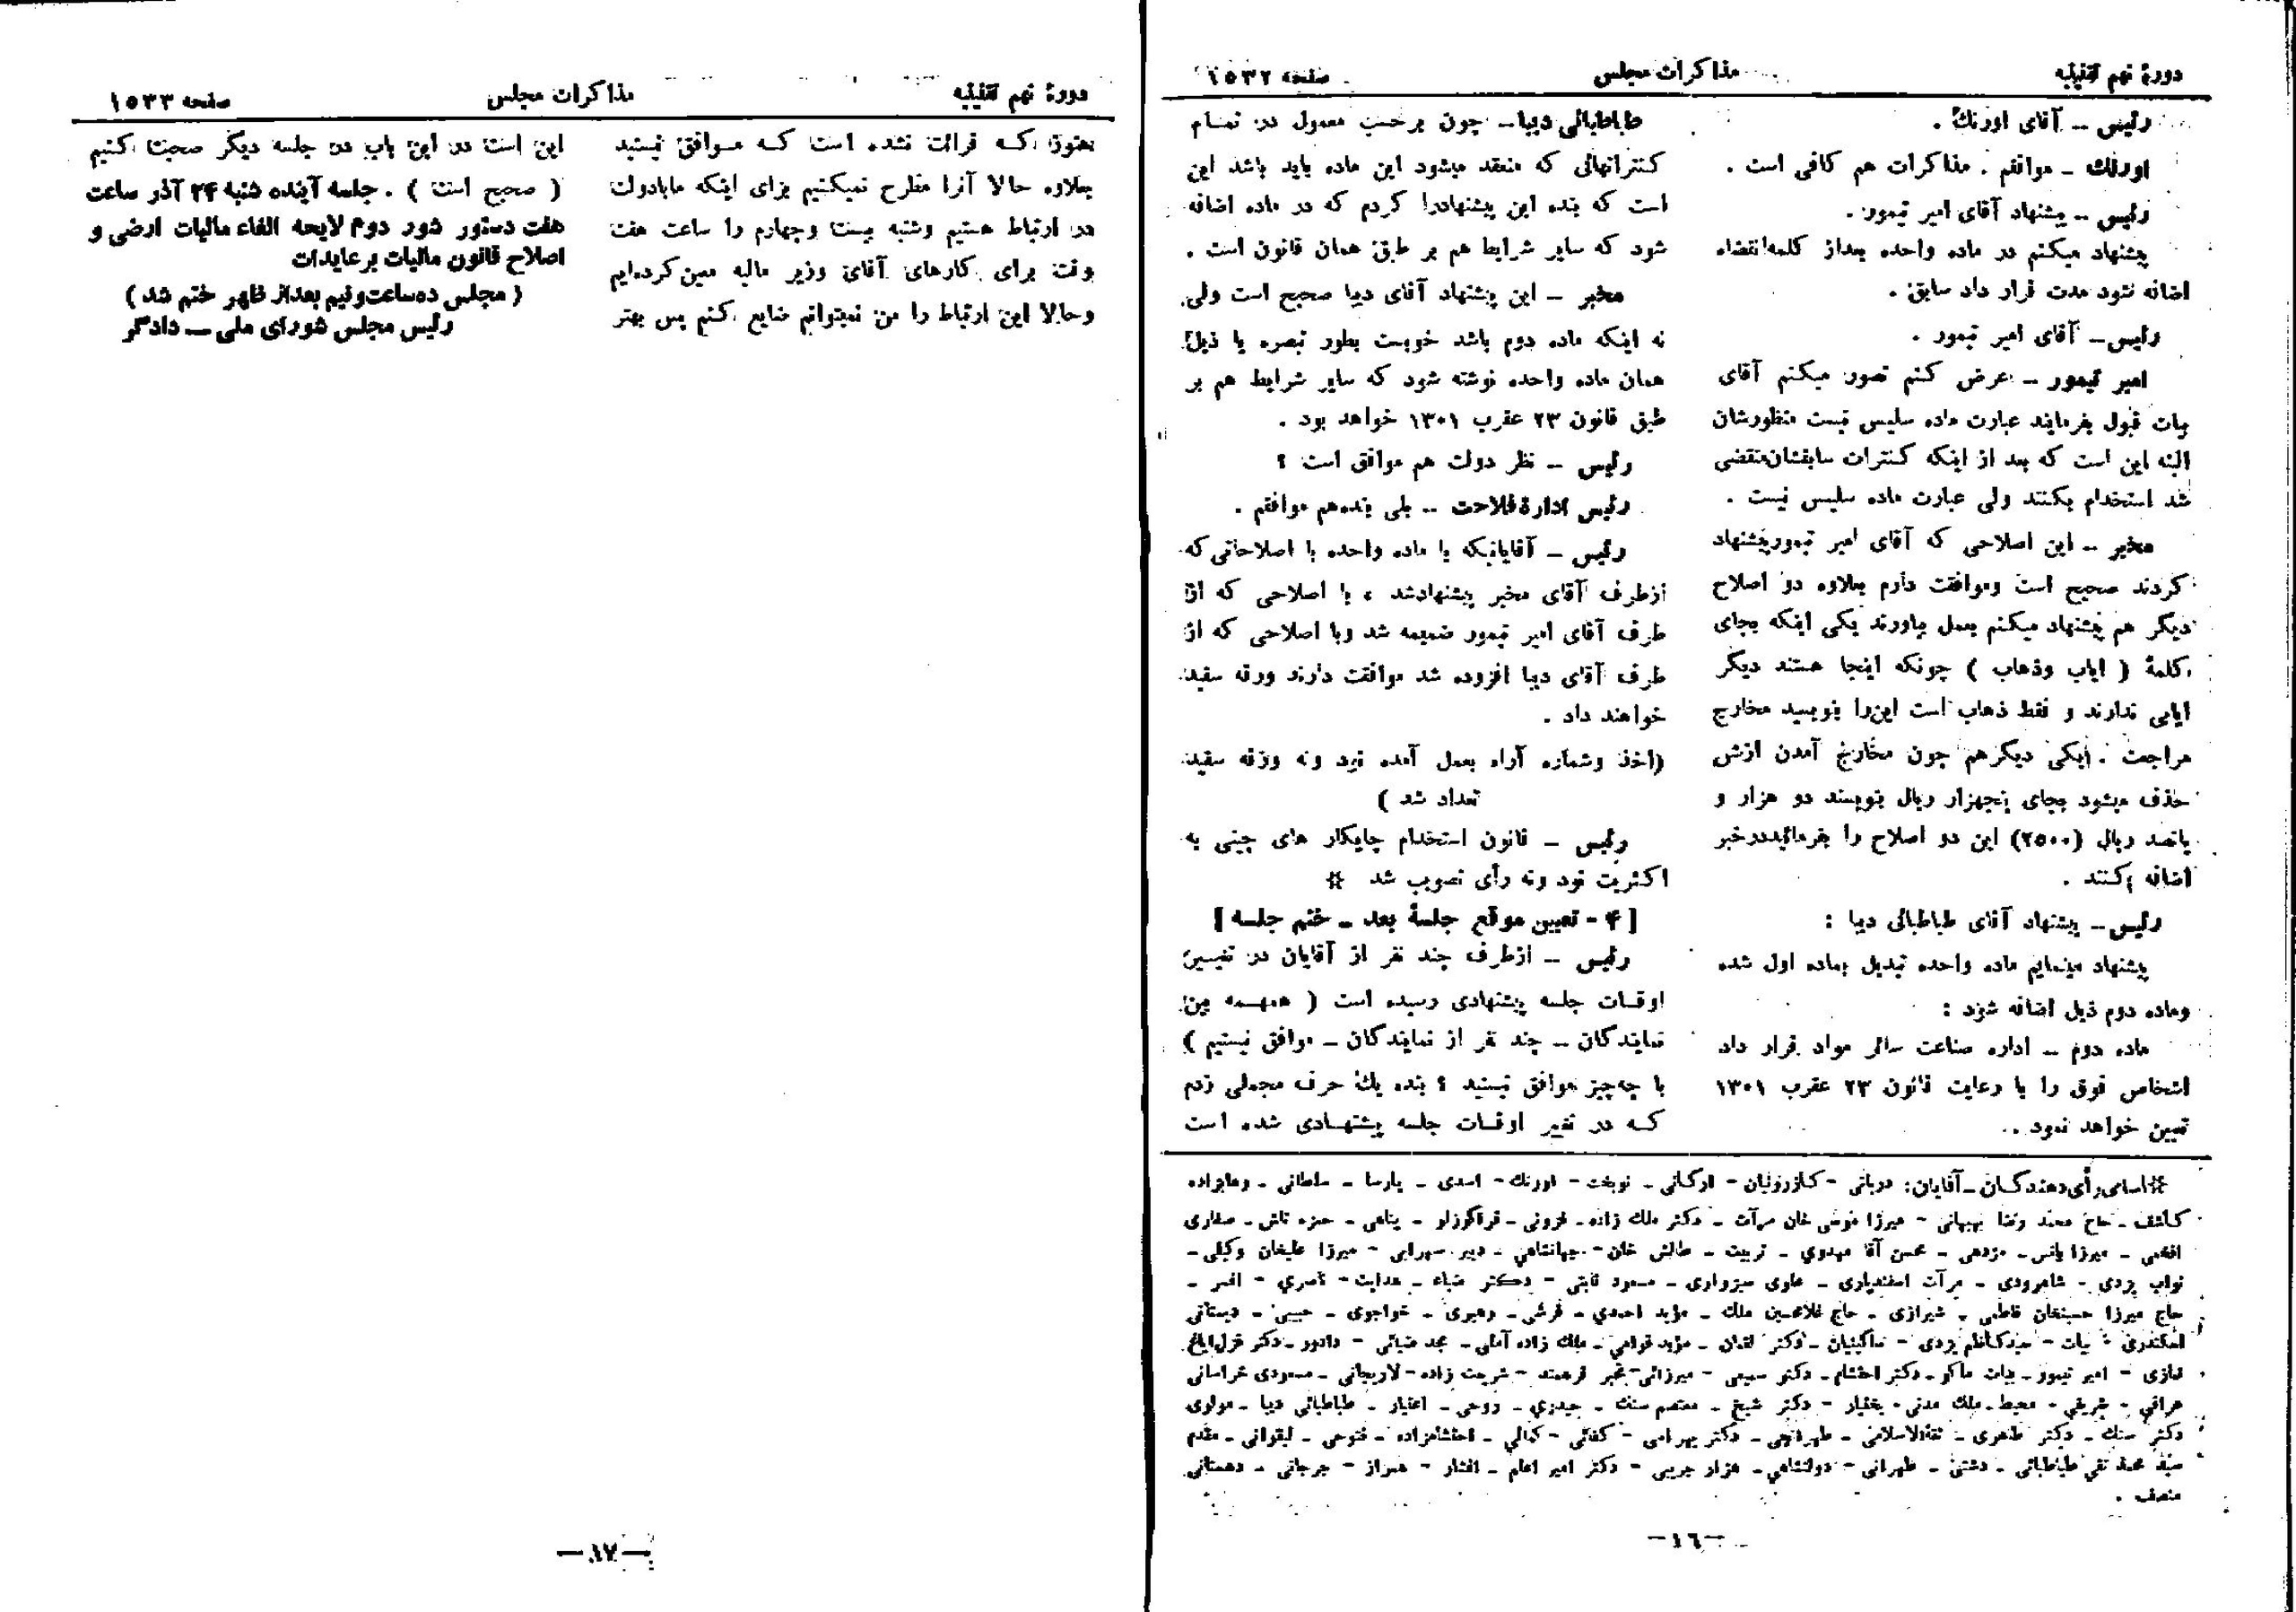 دورهٔ نهم تقنینیه مذاکرات مجلس صفحه ۱۵۳۲
رئیس – آقای اورنگ .
اورنگ – موافقم . مذاکرات هم کافی است .
رئیس – پیشنهاد آقای امیر تیمور.
پیشنهاد میکنم در ماده واحده بعداز کلمه انقضاء
اضافه شود مدت قرار داد سابق .
رئیس – آقای امیر تیمور .
امیر تیمور – عرض کنم تصور میکنم آقای
بیات قبول بفرمایند عبارت ماده سلیس نیست منظورشان
البته این است که بعد از اینکه کنترات سابقشان منقضی
شد استخدام بکنند ولی عبارت ماده سلیس نیست .
مخبر – این اصلاحی که آقای امیر تیمور پیشنهاد
کردند صحیح است وموافقت دارم بعلاوه دو اصلاح
دیگر هم پیشنهاد میکنم بعمل بیاورند یکی اینکه بجای
کلمهٔ ( ایاب وذهاب ) چونکه اینجا هستند دیگر
ایابی ندارند و فقط ذهاب است این‌را بنویسید مخارج
مراجعت . یکی دیگر هم چون مخارج آمدن ازش
حذف میشود بجای پنجهزار ریال بنویسند دو هزار و
پانصد ریال (۲۵۰۰) این دو اصلاح را بفرمائید در خبر
اضافه بکنند .
رئیس – پیشنهاد آقای طباطبائی دیبا :
پیشنهاد مینمایم ماده واحده تبدیل بماده اول شده
وماده دوم ذیل اضافه شود :
ماده دوم – اداره صناعت سائر مواد قرار داد
اشخاص فوق را با رعایت قانون ۲۳ عقرب ۱۳۰۱
تعیین خواهد نمود .
طباطبائی دیبا – چون برحسب معمول در تمام
کنتراتهائی که منعقد میشود این ماده باید باشد این
است که بنده این پیشنهاد را کردم که در ماده اضافه
شود که سایر شرایط هم بر طبق همان قانون است .
مخبر – این پیشنهاد آقای دیبا صحیح است ولی
نه اینکه ماده دوم باشد خوبست بطور تبصره یا ذیل
همان ماده واحده نوشته شود که سایر شرایط هم بر
طبق قانون ۲۳ عقرب ۱۳۰۱ خواهد بود .
رئیس – نظر دولت هم موافق است ؟
رئیس ادارهٔ فلاحت – بلی بنده‌هم موافقم .
رئیس – آقایانیکه با ماده واحده با اصلاحاتی که
ازطرف آقای مخبر پیشنهاد شد ، با اصلاحی که از
طرف آقای امیر تیمور ضمیمه شد وبا اصلاحی که از
طرف آقای دیبا افزوده شد موافقت دارند ورقه سفید
خواهند داد .
(اخذ وشماره آراء بعمل آمده نود ونه ورقه سفید
تعداد شد )
رئیس – قانون استخدام چایکار های چینی به
اکثریت نود ونه رأی تصویب شد #
[ ۴ - تعیین موقع جلسهٔ بعد – ختم جلسه ]
رئیس – ازطرف چند نفر از آقایان در تعیین
اوقات جلسه پیشنهادی رسیده است ( همهمه بین
نمایندگان – چند نفر از نمایندگان – موافق نیستیم )
با چه‌چیز موافق نیستید ؟ بنده یك حرف مجملی زدم
که در تغییر اوقات جلسه پیشنهادی شده است
# اسامی رأی دهندگان – آقایان: دربانی - کازرونیان - ارکانی - نوبخت - اورنك - اسدی - پارسا - سلطانی - وهابزاده
کاشف - حاج محمد رضا بهبهانی - میرزا موسی خان مرآت - دکتر ملك زاده - قزونی - قراگوزلو - پناهی - حمزه تاش - صفاری
افخمی - میرزا یانس - مژدهی - محسن آقا مهدوی - تربیت - طالش خان - جهانشاهی - دبیر سهرابی - میرزا علیخان وکیلی -
نواب یزدی - شاهرودی - مرآت اسفندیاری - علوی سبزواری - مسعود ثابتی - دکتر ضیاء - هدایت - ناصری - افسر -
حاج میرزا حسینخان فاطمی - شیرازی - حاج غلامحسین ملك - مؤید احمدی - فرشی - رهبری - خواجوی - حبیبی - دبستانی
اسکندری - بیات - سیدکاظم یزدی - ساگینیان - دکتر لقمان - مؤید قوامی - ملك زاده آملی - مجد ضیائی - دادور - دکتر قزل‌ایاغ
نمازی - امیر تیمور - بیات ماکو - دکتر احتشام - دکتر سمیعی - میرزائی - مخبر فرهمند - شریعت زاده - لاریجانی - مسعودی خراسانی
عراقی - شریفی - محیط - ملك مدنی - بختیار - دکتر شیخ - معتصم سنك - حیدری - روحی - اعتبار - طباطبائی دیبا - مولوی
دکتر سنك - دکتر طاهری - ثقةالاسلامی - طهرانچی - دکتر بهرامی - کفائی - کمالی - احتشامزاده - فتوحی - لیقوانی - مقدم
سید محمد تقی طباطبائی - دشتی - طهرانی - دولتشاهی - هزار جریبی - دکتر امیر اعلم - افشار - همراز - جرجانی - دهستانی
منصف .
–۱٦–
دورهٔ نهم تقنینیه مذاکرات مجلس صفحه ۱۵۳۳
هنوز که قرائت نشده است که موافق نیستید
بعلاوه حالا آنرا مطرح نمیکنیم برای اینکه مابادولت
در ارتباط هستیم وشنبه بیست وچهارم را ساعت هفت
وقت برای کارهای آقای وزیر مالیه معین کرده‌ایم
وحالا این ارتباط را من نمیتوانم ضایع کنم پس بهتر
این است در این باب در جلسه دیگر صحبت کنیم
( صحیح است ) . جلسه آینده شنبه ۲۴ آذر ساعت
هفت دستور شور دوم لایحه الغاء مالیات ارضی و
اصلاح قانون مالیات بر عایدات
( مجلس ده‌ساعت‌ونیم بعداز ظهر ختم شد )
رئیس مجلس شورای ملی – دادگر
–۱۷–